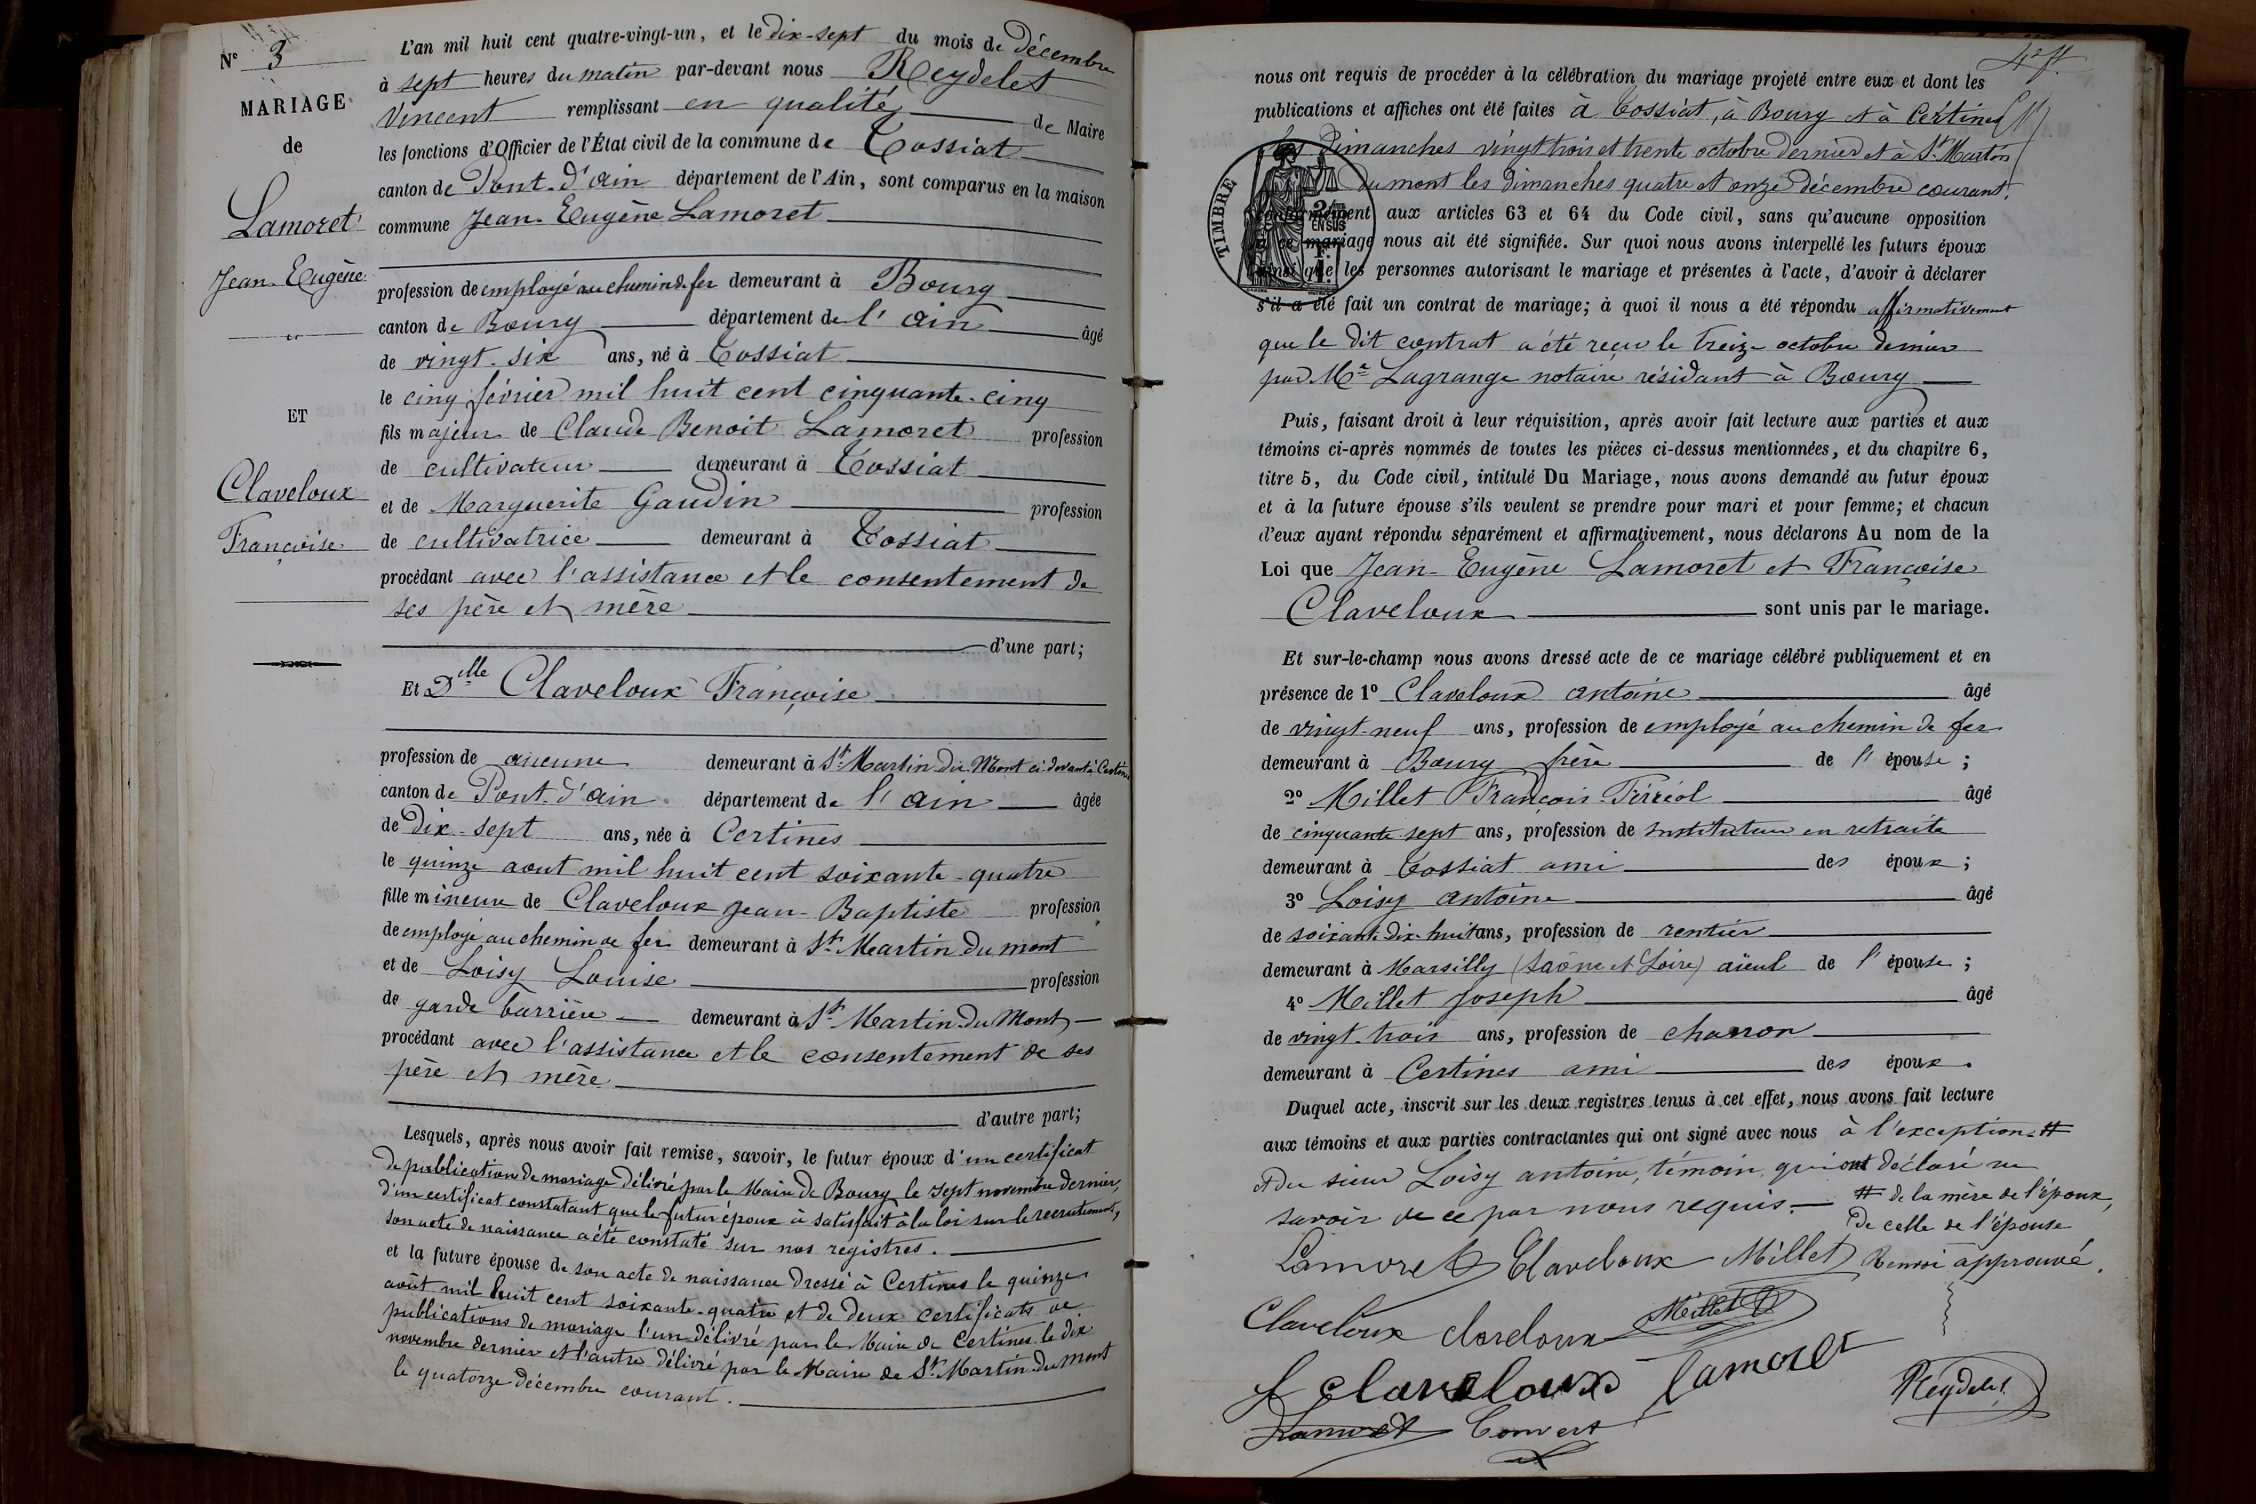 N° 3
MARIAGE
de
Lamoret
Jean-Eugène
ET
Claveloux
Françoise
L'an mil huit cent quatre-vingt-un, et le dix-sept du mois de décembre
à sept heures du matin par-devant nous Reydelet
Vincent remplissant en qualité de Maire
les fonctions d'Officier de l'État civil de la commune de Tossiat
canton de Pont-d'ain département de l'Ain, sont comparus en la maison
commune Jean-Eugène Lamoret
profession de employé au chemin de fer demeurant à Bourg
canton de Bourg département de l'ain âgé
de vingt-six ans, né à Tossiat
le cinq février mil huit cent cinquante-cinq
fils majeur de Claude Benoit Lamoret profession
de cultivateur demeurant à Tossiat
et de Marguerite Gaudin profession
de cultivatrice demeurant à Tossiat
procédant avec l'assistance et le consentement de
ses père et mère
d'une part;
Et Dlle Claveloux Françoise
profession de aucune demeurant à St Martin du Mont ci-devant à Certines
canton de Pont-d'ain département de l'ain âgée
de dix-sept ans, née à Certines
le quinze aout mil huit cent soixante-quatre
fille mineure de Claveloux Jean-Baptiste profession
de employé au chemin de fer demeurant à St Martin du mont
et de Loisy Louise profession
de garde barrière demeurant à St Martin du Mont
procédant avec l'assistance et le consentement de ses
père et mère
d'autre part;
Lesquels, après nous avoir fait remise, savoir, le futur époux d'un certificat
de publication de mariage délivré par le Maire de Bourg le sept novembre dernier,
d'un certificat constatant que le futur époux à satisfait à la loi sur le recrutement,
son acte de naissance a été constaté sur nos registres.
et la future épouse de son acte de naissance dressé à Certines le quinze
août mil huit cent soixante-quatre et de deux certificats de
publications de mariage l'un délivré par le Maire de Certines le dix
novembre dernier et l'autre délivré par le Maire de St Martin du Mont
le quatorze décembre courant.
nous ont requis de procéder à la célébration du mariage projeté entre eux et dont les
publications et affiches ont été faites à Tossiat, à Bourg et à Certines
les Dimanches vingt trois et trente octobre dernier et à St Martin
du mont les dimanches quatre et onze décembre courant,
conformément aux articles 63 et 64 du Code civil, sans qu'aucune opposition
à ce mariage nous ait été signifiée. Sur quoi nous avons interpellé les futurs époux
ainsi que les personnes autorisant le mariage et présentes à l'acte, d'avoir à déclarer
s'il a été fait un contrat de mariage; à quoi il nous a été répondu affirmativement
TIMBRE
que le dit contrat a été reçu le treize octobre dernier
par Me Lagrange notaire résidant à Bourg
Puis, faisant droit à leur réquisition, après avoir fait lecture aux parties et aux
témoins ci-après nommés de toutes les pièces ci-dessus mentionnées, et du chapitre 6,
titre 5, du Code civil, intitulé Du Mariage, nous avons demandé au futur époux
et à la future épouse s'ils veulent se prendre pour mari et pour femme; et chacun
d'eux ayant répondu séparément et affirmativement, nous déclarons Au nom de la
Loi que Jean-Eugène Lamoret et Françoise
Claveloux sont unis par le mariage.
Et sur-le-champ nous avons dressé acte de ce mariage célébré publiquement et en
présence de 1° Claveloux antoine âgé
de vingt-neuf ans, profession de employé au chemin de fer
demeurant à Bourg frère de l'épouse ;
2° Millet François Ferréol âgé
de cinquante sept ans, profession de instituteur en retraite
demeurant à Tossiat ami des époux ;
3° Loisy antoine âgé
de soixante-dix-huit ans, profession de rentier
demeurant à Marsilly (Saône et Loire) aïeul de l'épouse ;
4° Millet Joseph âgé
de vingt-trois ans, profession de charron
demeurant à Certines ami des époux.
Duquel acte, inscrit sur les deux registres tenus à cet effet, nous avons fait lecture
aux témoins et aux parties contractantes qui ont signé avec nous à l'exception #
et du sieur Loisy antoine, témoin, qui ont déclaré ne
savoir de ce par nous requis.
# de la mère de l'époux,
de celle de l'épouse
Renvoi approuvé.
Lamoret Claveloux Millet
Claveloux claveloux Millet
f claveloux lamoret Reydelet
Lamoret Convert